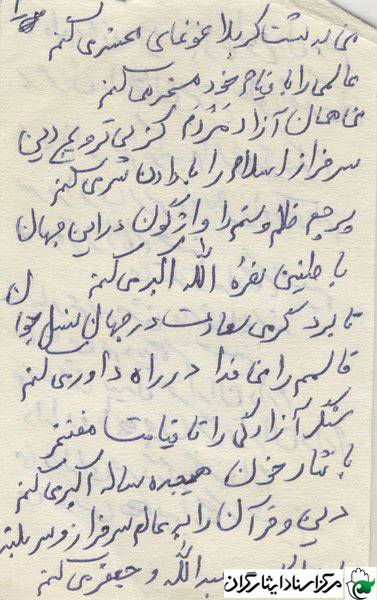 من به دشت کربلا غوغای محشر می کنم
عالمی را با قیام خود مسخر می کنم
من همان آزاد مردم کز پی ترویج دین
سرفراز اسلام را با دادن سر می کنم
پرچم ظلم و ستم را واژگون در این جهان
با طنین نعره الله اکبر می کنم
تا برد گرمی سعادت در جهان نسل جوان
قاسم را من فدا در راه داور می کنم
سنگر آزادگی را تا قیامت مفتخر
با نثار خون هیجده ساله اکبر می کنم
دین و قرآن را به عالم سرفراز و سربلند
عبدالله و جعفر می کنم
مرکز اسناد ایثارگران